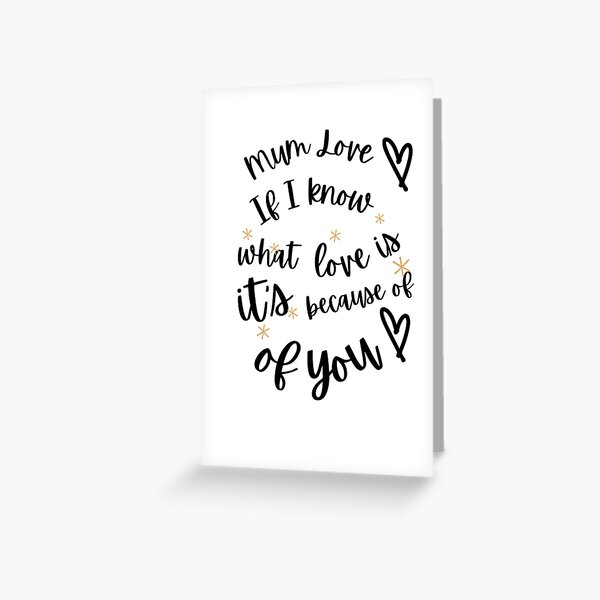 Mum Love
If I know
what love is
it's because of
of you